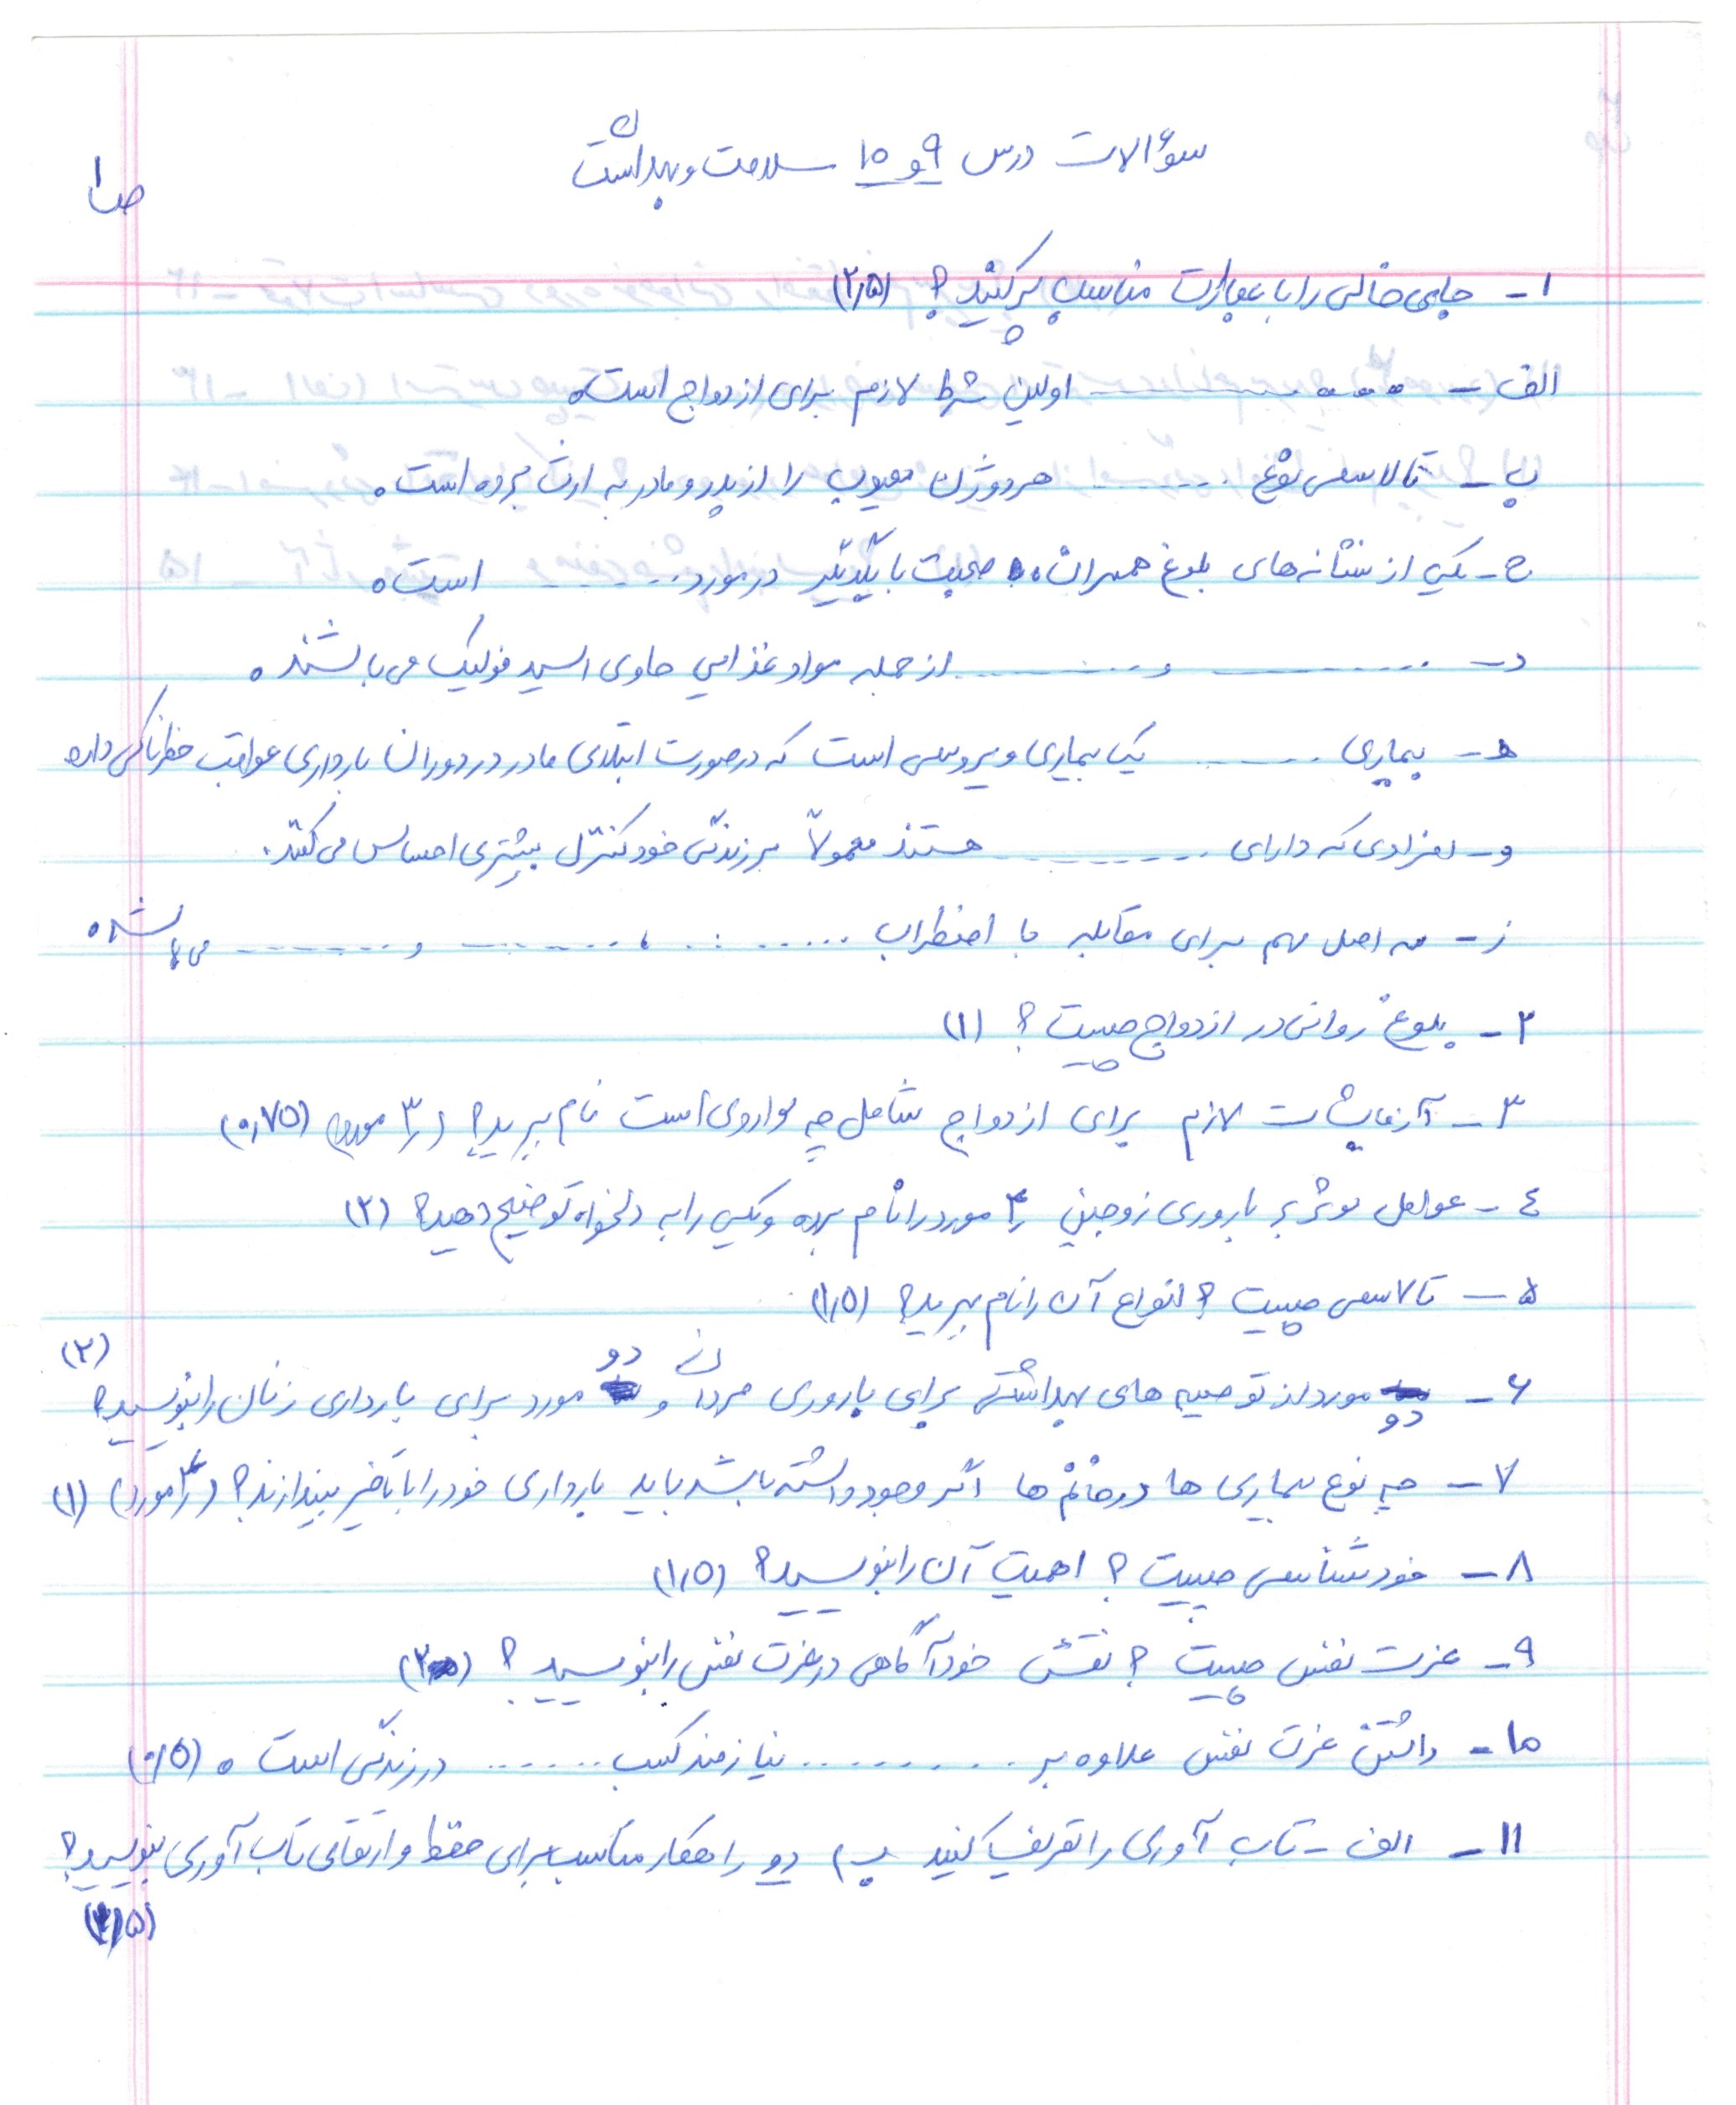 سؤالات درس ۹ و ۱۰ سلامت و بهداشت
ص۱
۱- جاهای خالی را با عبارت مناسب پر کنید؟ (۲/۵)
الف- .......... اولین شرط لازم برای ازدواج است.
ب- تالاسمی نوع ........ هر دو ژن معیوب را از پدر و مادر به ارث برده است.
ج- یکی از نشانه‌های بلوغ همسران، صحبت با یکدیگر در مورد ........ است.
د- .......... و .......... از جمله مواد غذایی حاوی اسید فولیک می باشند.
ه- بیماری ........ یک بیماری ویروسی است که در صورت ابتلای مادر در دوران بارداری عواقب خطرناکی دارد
و- افرادی که دارای ........ هستند معمولاً بر زندگی خود کنترل بیشتری احساس می کنند.
ز- سه اصل مهم برای مقابله با اضطراب ........ ، ........ و ........ می باشد.
۲- بلوغ روانی در ازدواج چیست؟ (۱)
۳- آزمایشات لازم برای ازدواج شامل چه مواردی است نام ببرید؟ (۳ مورد) (۰/۷۵)
٤- عوامل موثر بر باروری زوجین ۴ مورد را نام برده و یکی را به دلخواه توضیح دهید؟ (۲)
۵- تالاسمی چیست؟ انواع آن را نام ببرید؟ (۱/۵)
۶- دو مورد از توصیه های بهداشتی برای باروری مردان و دو مورد برای بارداری زنان را بنویسید؟ (۲)
۷- چه نوع بیماری ها در خانم ها اگر وجود داشته باشد باید بارداری خود را با تاخیر بیندازند؟ (۴ مورد) (۱)
۸- خودشناسی چیست؟ اهمیت آن را بنویسید؟ (۱/۵)
۹- عزت نفس چیست؟ نقش خودآگاهی در عزت نفس را بنویسید؟ (۲)
۱۰- داشتن عزت نفس علاوه بر ........ نیازمند کسب ........ در زندگی است. (۰/۵)
۱۱- الف- تاب آوری را تعریف کنید ب) دو راهکار مناسب برای حفظ و ارتقای تاب آوری بنویسید؟